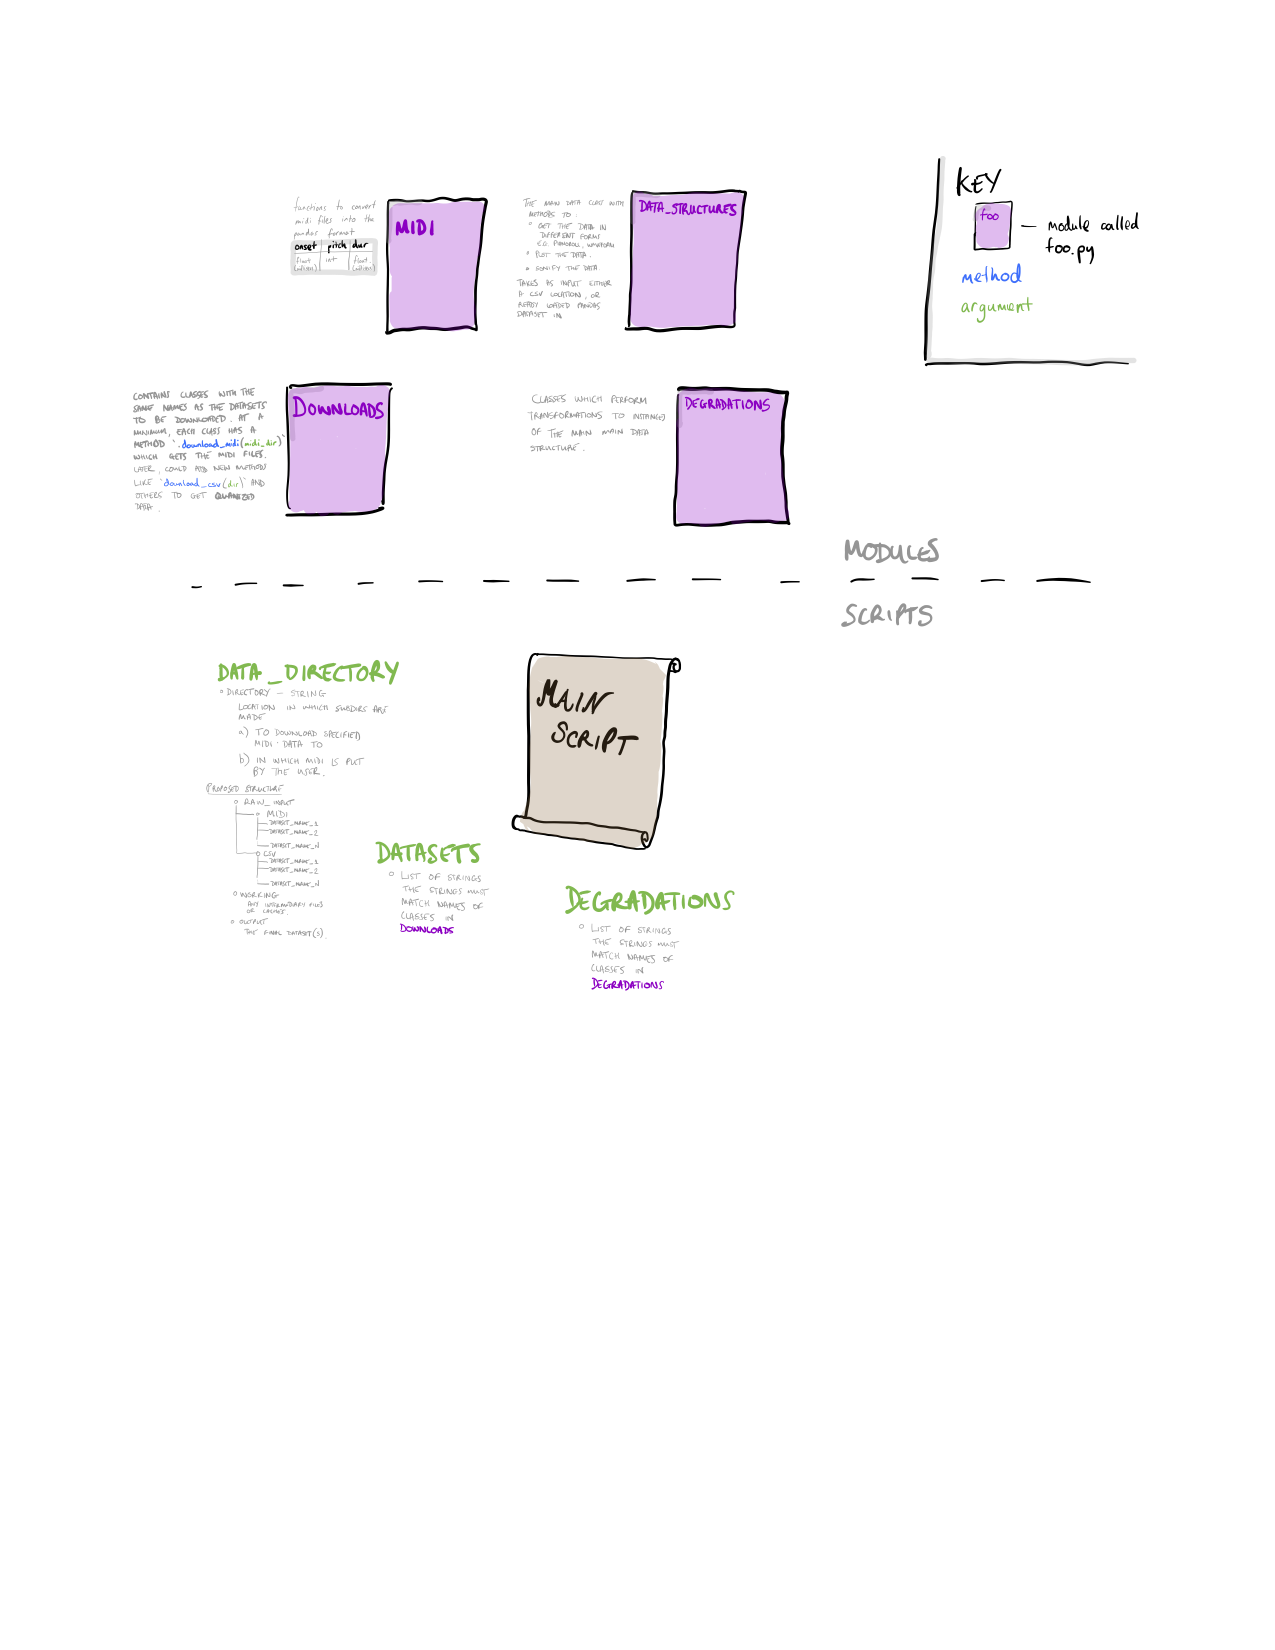 functions to convert
midi files into the
pandas format
onset pitch dur
float int float
MIDI
THE MAIN DATA CLASS WITH
METHODS TO:
GET THE DATA IN
DIFFERENT FORM
E.G. PIANOROLL, WAVEFORM
PLOT THE DATA.
SONIFY THE DATA.
TAKES AS INPUT EITHER
A CSV LOCATION, OR
READY LOADED PANDAS
DATASET IN
DATA_STRUCTURES
KEY
foo
— module called
foo.py
method
argument
CONTAINS CLASSES WITH THE
SAME NAMES AS THE DATASETS
TO BE DOWNLOADED. AT A
MINIMUM, EACH CLASS HAS A
METHOD `.download_midi(midi_dir)`
WHICH GETS THE MIDI FILES.
LATER, COULD ADD NEW METHODS
LIKE `download_csv(dir)` AND
OTHERS TO GET QUANIZED
DATA.
DOWNLOADS
CLASSES WHICH PERFORM
TRANSFORMATIONS TO INSTANCES
OF THE MAIN MAIN DATA
STRUCTURE.
DEGRADATIONS
MODULES
SCRIPTS
DATA_DIRECTORY
DIRECTORY — STRING
LOCATION IN WHICH SUBDIRS ARE
MADE
a) TO DOWNLOAD SPECIFIED
MIDI DATA TO
b) IN WHICH MIDI IS PUT
BY THE USER.
PROPOSED STRUCTURE
RAW_INPUT
MIDI
DATASET_NAME_1
DATASET_NAME_2
DATASET_NAME_N
CSV
DATASET_NAME_1
DATASET_NAME_2
DATASET_NAME_N
WORKING
ANY INTERMEDIARY FILES
OR CACHES.
OUTPUT
THE FINAL DATASET(S).
MAIN
SCRIPT
DATASETS
LIST OF STRINGS
THE STRINGS MUST
MATCH NAMES OF
CLASSES IN
DOWNLOADS
DEGRADATIONS
LIST OF STRINGS
THE STRINGS MUST
MATCH NAMES OF
CLASSES IN
DEGRADATIONS